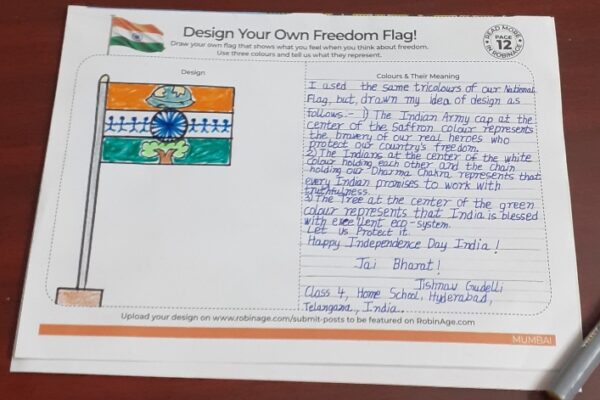 Design Your Own Freedom Flag!
Draw your own flag that shows what you feel when you think about freedom.
Use three colours and tell us what they represent.
READ MORE
PAGE
12
IN ROBINAGE
Design
Colours & Their Meaning
I used the same tricolours of our National
Flag, but, drawn my idea of design as
follows:- 1) The Indian Army cap at the
center of the Saffron colour represents
the bravery of our real heroes who
protect our country's freedom.
2) The Indians at the center of the white
colour holding each other and the chain
holding our Dharma Chakra represents that
every Indian promises to work with
truthfulness.
3) The Tree at the center of the green
colour represents that India is blessed
with excellent eco-system.
Let us Protect it.
Happy Independence Day India!
Jai Bharat!
Jishnav Gudelli
Class 4, Home School, Hyderabad,
Telangana, India.
Upload your design on www.robinage.com/submit-posts to be featured on RobinAge.com
MUMBAI